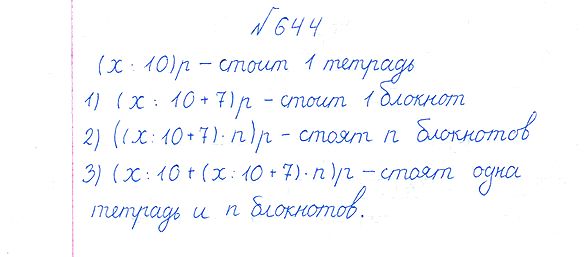 № 644
(x : 10)р – стоит 1 тетрадь
1) (x : 10 + 7)р – стоит 1 блокнот
2) ((x : 10 + 7) · n)р – стоят n блокнотов
3) (x : 10 + (x : 10 + 7) · n)р – стоят одна
тетрадь и n блокнотов.